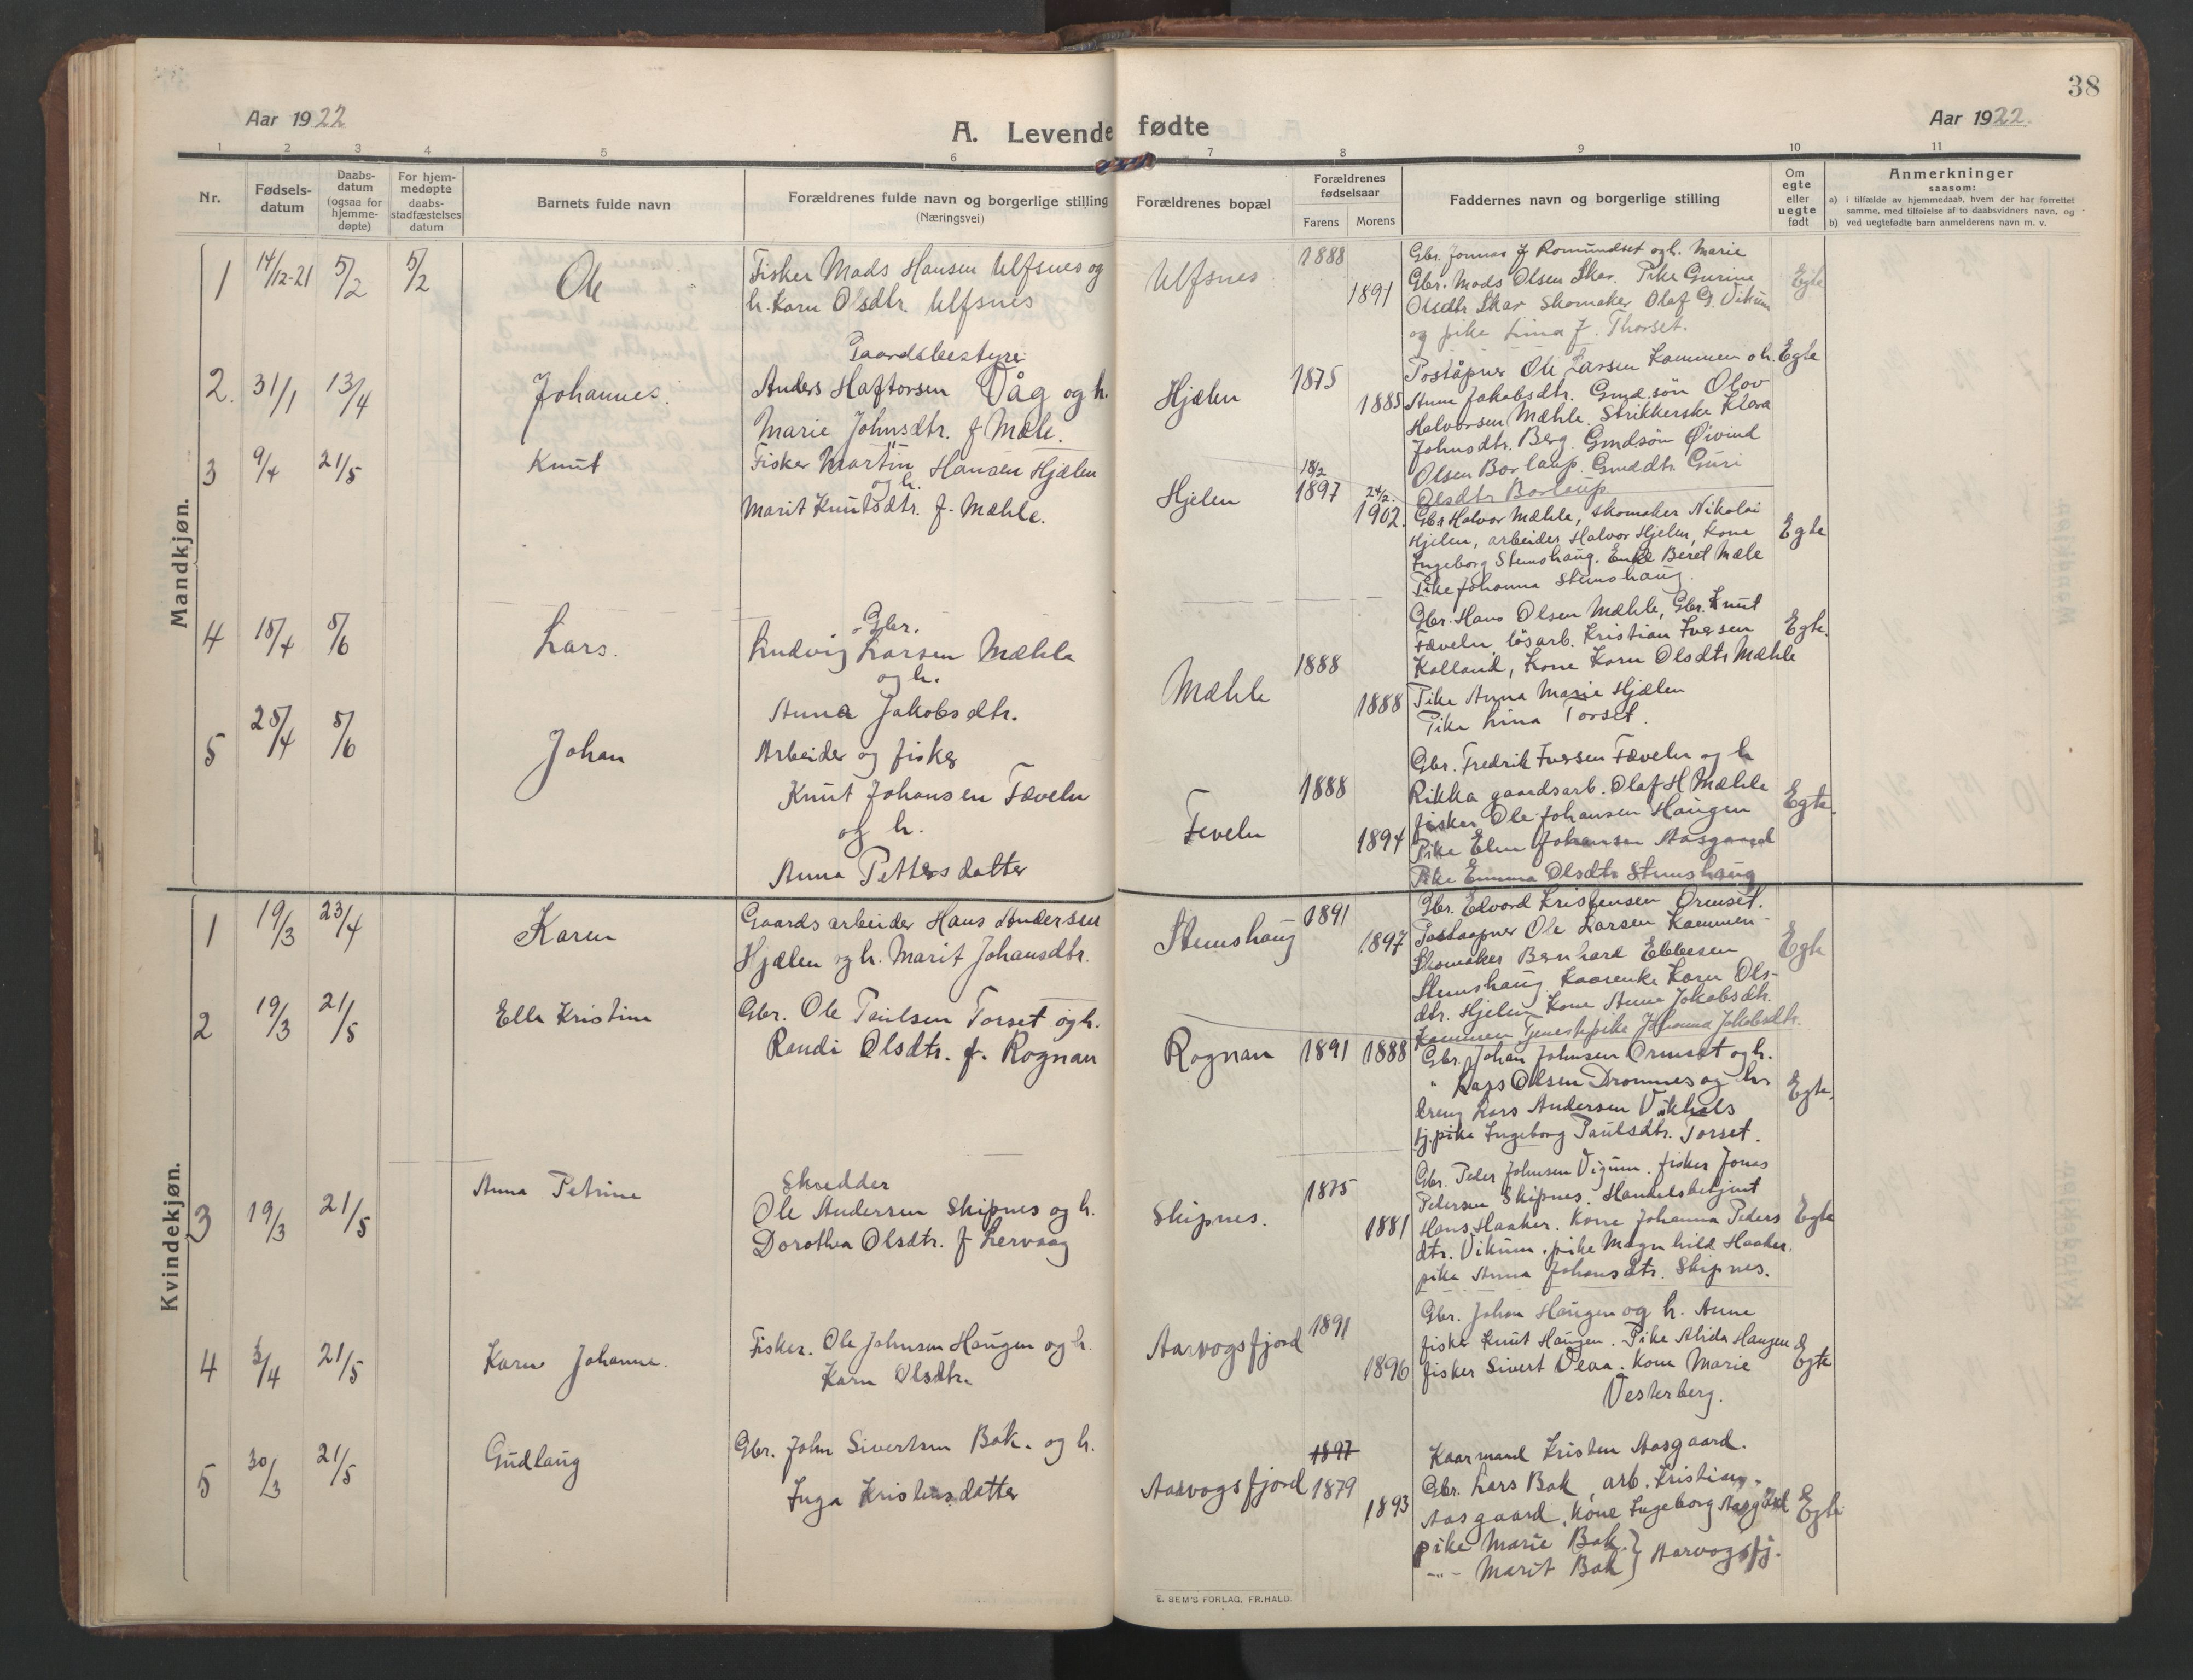 38
Aar 1922
A. Levende fødte
Aar 1922.
1 2 3 4 5 6 7 8 9 10 11
Nr.
Fødsels-
datum
Daabs-
datum
(ogsaa for
hjemme-
døpte)
For hjem-
medøpte
daabs-
stadfæstelses
datum
Barnets fulde navn
Forældrenes fulde navn og borgerlige stilling
(Næringsvei)
Forældrenes bopæl
Forældrenes
fødselsaar
Farens
Morens
Faddernes navn og borgerlige stilling
Om
egte
eller
uegte
født
Anmerkninger
saasom:
a) i tilfælde av hjemmedaab, hvem der har forrettet
samme, med tilføielse af to daabsvidners navn, og
b) ved uegtefødte barn anmelderens navn m. v.
Mandkjøn.
1
14/12-21
5/2
5/2
Ole
Fisker Mads Hansen Ulfsnes og
h. Karn Olsdtr. Ulfsnes
Ulfsnes
1888
1891
Gbr. Jonnas J Romundset og h. Marie
Gbr. Mads Olsen Skar. Pike Gurine
Olsdtr Skar Skomaker Olaf G. Vikum
og pike Lina J. Thorset.
Egte
2.
31/1
13/4
Johannes.
Gaardsbestyrer
Anders Haftorsen Våg og h.
Marie Johnsdtr. f Mæle.
Hjælen
1875
1885
Poståpner Ole Larsen Kammen o h.
Anne Jakobsdtr. Gmd.søn Olov
Halvorsen Mæhle. Strikkerske Klara
Johnsdtr. Berg. Gmdsøn Øivind
Olsen Borlaup. Gmddtr. Guri
Olsdtr Borlaup
Egte
3
9/4
21/5
Knut
Fisker Martin Hansen Hjælen
og h.
Marit Knutsdtr. f. Mæhle.
Hjelen
18/2
1897
24/2.
1902.
Gbr Halvor Mæhle, skomaker Nikolai
Hjelen, arbeider Halvor Hjelen, Kone
Ingeborg Stemshaug. Enke Beret Mæle
Pike Johanna Stemshaug.
Egte
4
15/4
5/6
Lars.
Gbr.
Ludvig Larsen Mæhle
og h.
Anna Jakobsdtr.
Mæhle
1888
1888
Gbr. Hans Olsen Mæhle, Gbr. Knut
Føveln, løsarb. Kristian Iversen
Kalland, Kone Karn Olsdtr Mæhle
Pike Anna Marie Hjælen
Pike Lina Torset.
Egte.
5
25/4
5/6
Johan
Arbeider og fisker
Knut Johansen Fæveln
og h.
Anna Pettersdatter
Feveln
1888
1894
Gbr. Fredrik Iversen Fæveln og h
Rikka gaardsarb. Olaf H Mæhle
fisker Ole Johansen Haugen
Pike Elen Johansen Aasgaard
Pike Emma Olsdtr Stemshaug
Egte.
Kvindekjøn.
1
19/3
23/4
Karen
Gaardsarbeider Hans Andersen
Hjælen og h. Marit Johansdtr.
Stemshaug
1891
1897
Gbr. Edvard Kristensen Ormset.
Postaapner Ole Larsen Kammen
Skomaker Bernhard Ebbesen
Stemshaug. Kaarenke Karn Ols-
dtr. Hjelen Kone Anne Jakobsdtr.
Kammen Tjenestepike Johanna Jakobsdtr.
Egte
2
19/3
21/5
Ella Kristine
Gbr. Ole Paulsen Torset og h.
Randi Olsdtr. f. Rognan
Rognan
1891
1888
Gbr. Johan Johnsen Ormset og h.
" Lars Olsen Dromnes og h
dreng Lars Andersen Vikhals
tj.pike Ingeborg Paulsdtr. Torset.
Egte.
3
19/3
21/5
Anna Petrine
Skredder
Ole Andersen Skipnes og h.
Dorothea Olsdtr. f Lervaag
Skipnes.
1875
1881
Gbr. Peder Johnsen Vigum. fisker Jonas
Pedersen Skipnes. Handelsbetjent
Hans Haaker. Kone Johanna Peders
dtr. Vikum. pike Magnhild Haaker.
pike Anna Johansdtr. Skipnes.
Egte
4
3/4
21/5
Karn Johanne.
Fisker. Ole Johnsen Haugen og h.
Karn Olsdtr.
Aarvogsfjord
1891
1896
Gbr. Johan Haugen og h. Anne
fisker Knut Haugen. Pike Alida Haugen
fisker Sivert Vlaa. Kone Marie
Vesterberg.
Egte
5
30/3
21/5
Gudlaug
Gbr. John Sivertsen Bak. og h.
Inga Kristensdatter
Aarvogsfjord
1897
1879
1893
Kaarmand Kristen Aasgaard.
Gbr. Lars Bak, arb. Kristian
Aasgaard. Kone Ingeborg Aasgård
pike Marie Bak }
-"- Marit Bak } Aarvogsfj.
Egte
E. SEM'S FORLAG, FR.HALD.